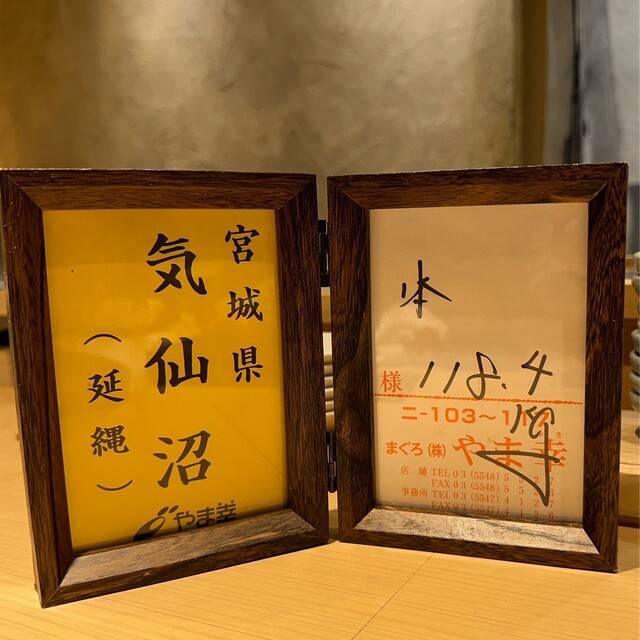 宮城県
気仙沼
（延縄）
やま幸
本
様 118.4
ニ-103～
まぐろ(株) やま幸
店舗 TEL 03 (5548) 5
FAX 03 (5548) 5
事務所 TEL 03 (5547) 4
FAX 03 (5547)